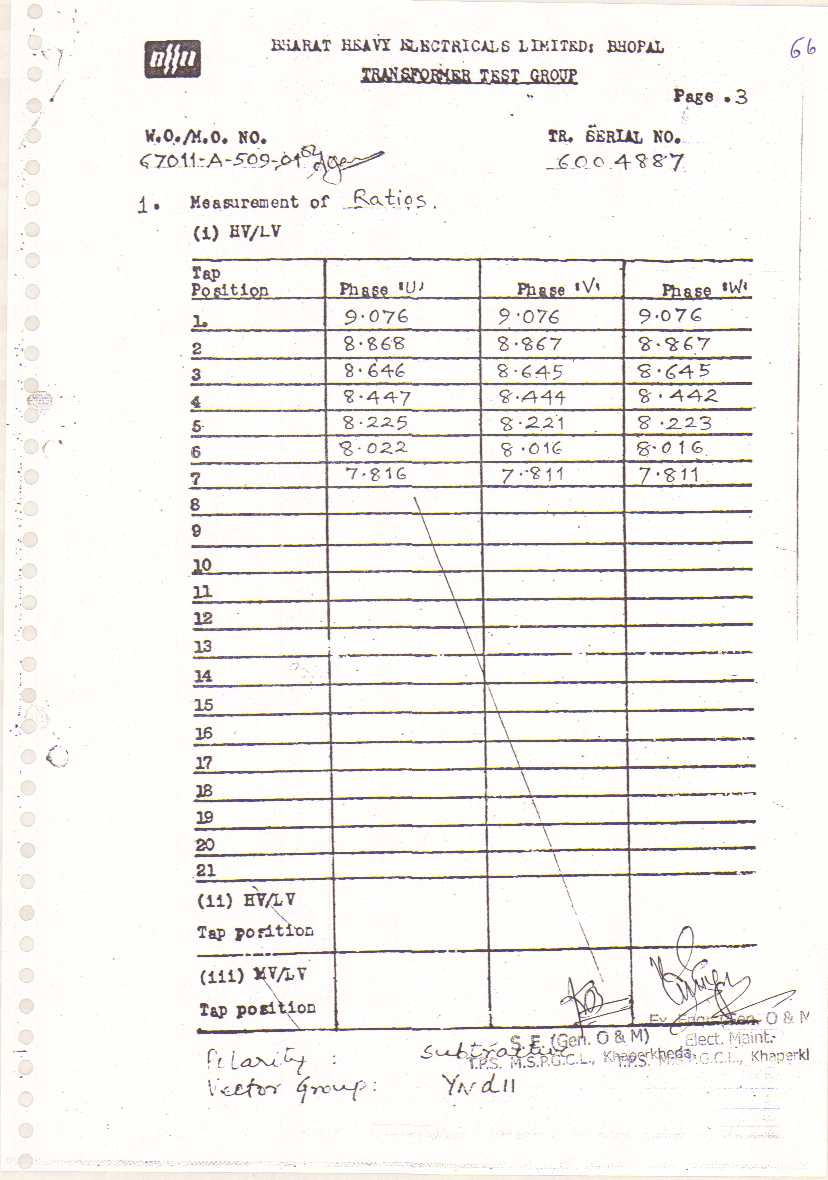 BHARAT HEAVY ELECTRICALS LIMITED: BHOPAL
66
TRANSFORMER TEST GROUP
Page .3
W.O./M.O. NO.
TR. SERIAL NO.
67011-A-509-01
6004887
1. Measurement of Ratios.
(i) HV/LV
Tap Position Phase 'U' Phase 'V' Phase 'W'
1. 9.076 9.076 9.076
2 8.868 8.867 8.867
3 8.646 8.645 8.645
4 8.447 8.444 8.442
5 8.225 8.221 8.223
6 8.022 8.016 8.016
7 7.816 7.811 7.811
8
9
10
11
12
13
14
15
16
17
18
19
20
21
(ii) HV/LV
Tap position
(iii) MV/LV
Tap position
O & M
S.E. (Gen. O & M) Elect. Maint.
Polarity : Subtractive
T.P.S. M.S.P.G.C.L., Khaperkheda. T.P.S. M.S.P.G.C.L., Khaperkl
Vector Group: YNd11